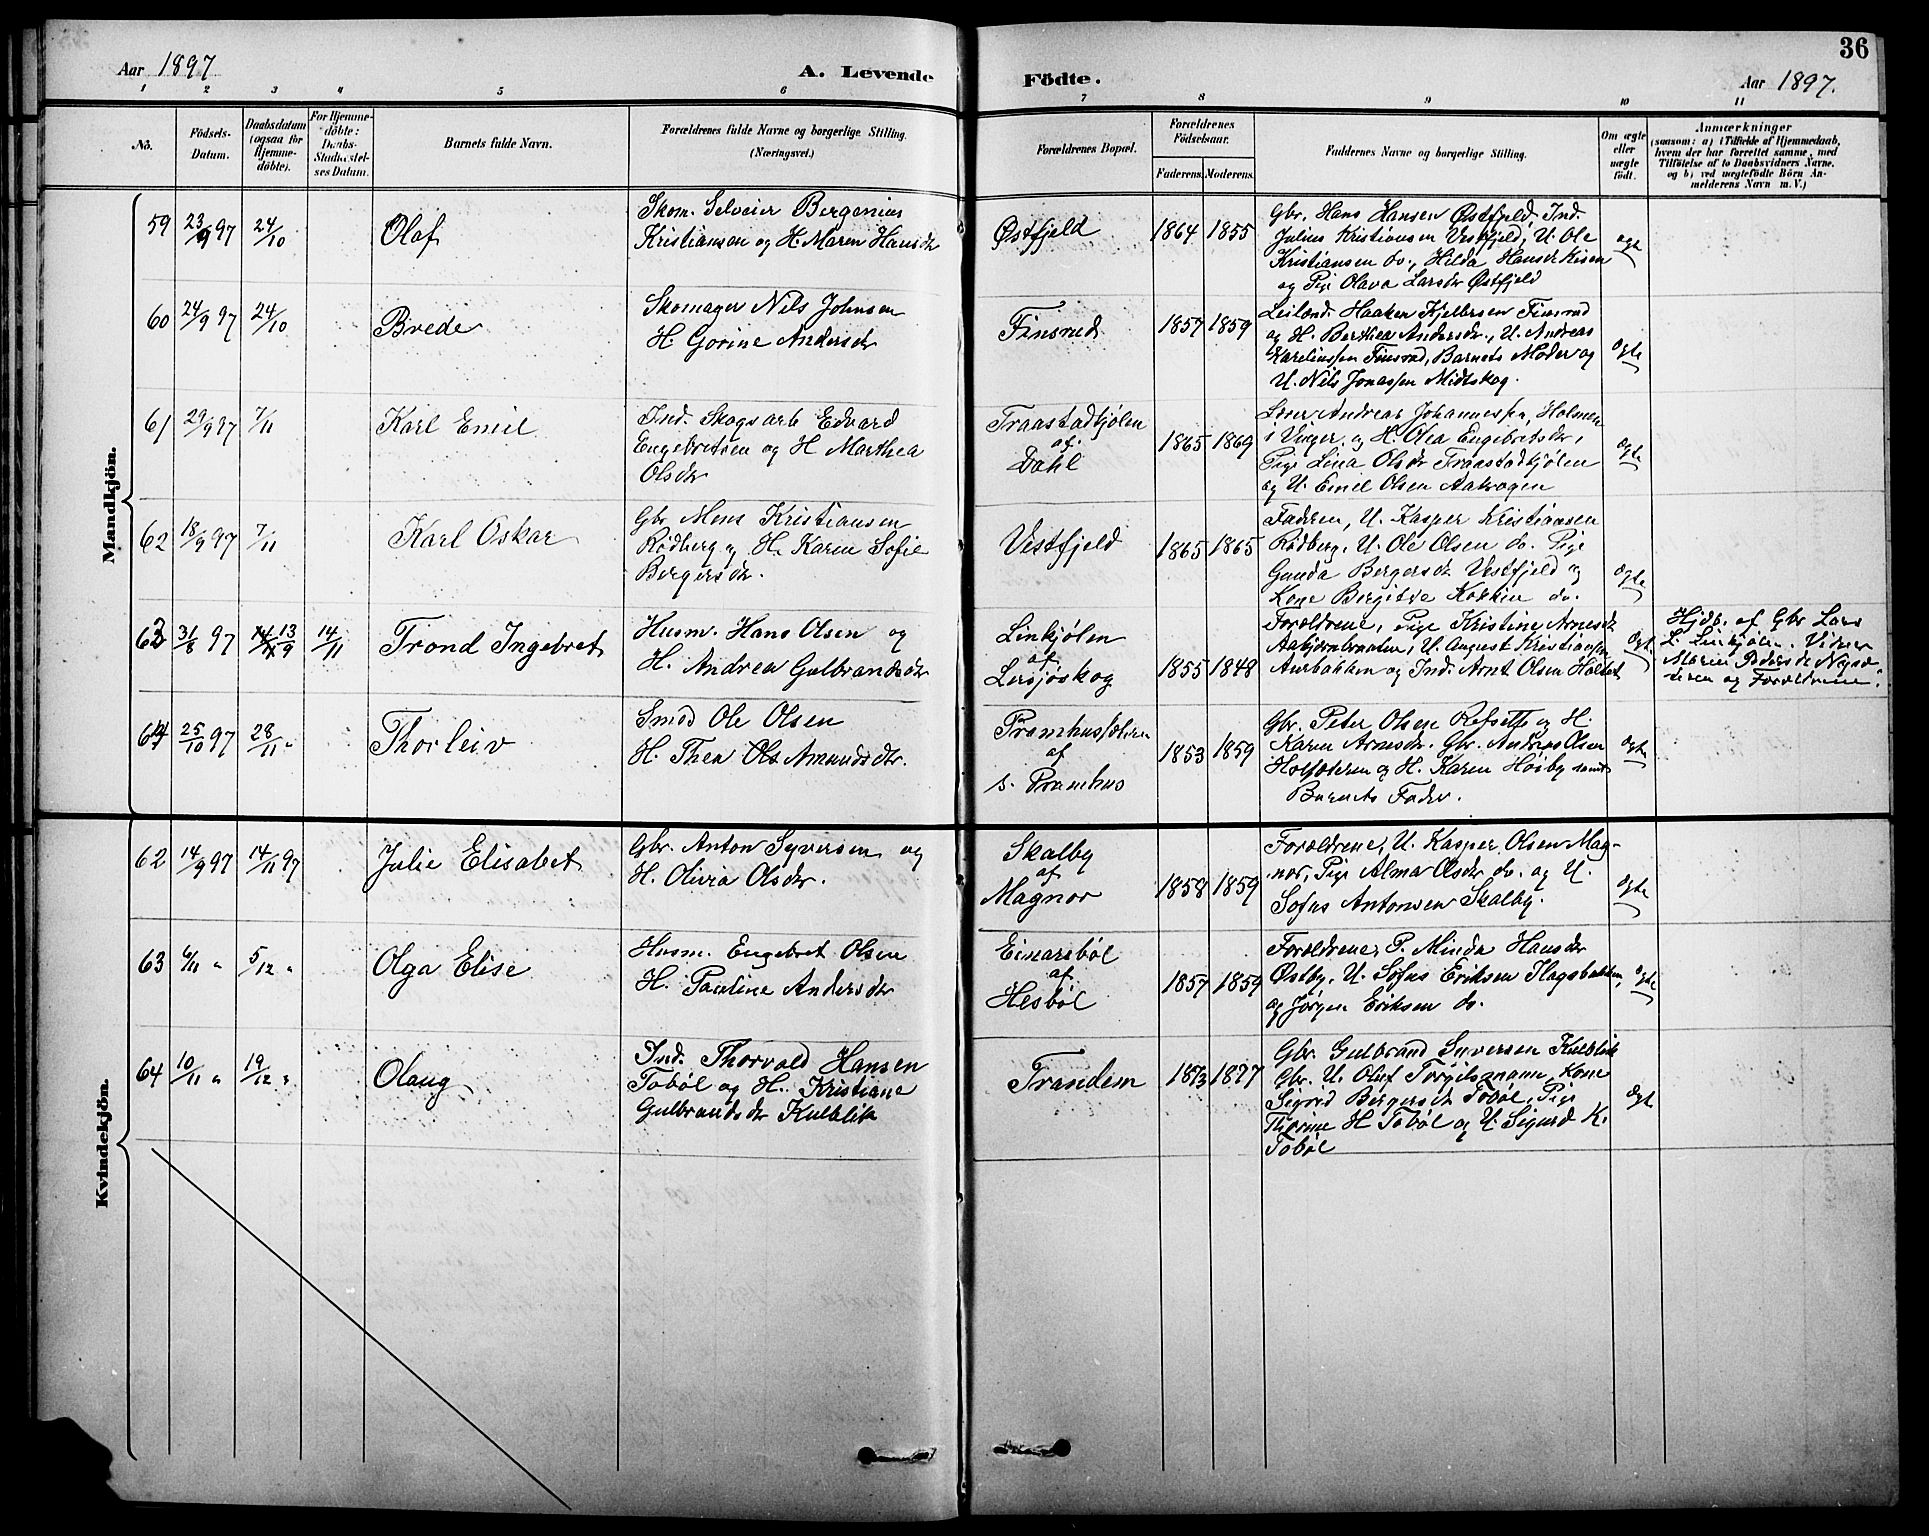 36
Aar 1897
A. Levende Födte.
Aar 1897.
1 2 3 4 5 6 7 8 9 10 11
No.
Födsels-
Datum.
Daabsdatum
(ogsaa for
Hjemme-
döbte).
For Hjemme-
döbte:
Daabs-
Stadfæstel-
ses Datum.
Barnets fulde Navn.
Forældrenes fulde Navne og borgerlige Stilling.
(Næringsvei.)
Forældrenes Bopæl.
Forældrenes
Födselsaar.
Faderens. Moderens.
Faddernes Navne og borgerlige Stilling.
Om ægte
eller
uægte
födt.
Anmærkninger
(saasom: a) i Tilfælde af Hjemmedaab,
hvem der har forrettet samme, med
Tilföielse af to Daabsvidners Navne,
og b) ved uægtefödte Börn An-
melderens Navn m. V.)
Mandkjön.
59 23/9 97 24/10 Olaf
Skom. Selveier Bergenius
Kristiansen og H. Maren Hansdr
Østfjeld 1864 1855
Gbr. Hans Hansen Østfjeld, Ind.
Julius Kristiansen Vestfjeld, U. Ole
Kristiansen do., Hilda Hansdr
og Pige Olava Larsdr Østfjeld
ægte
60 24/9 97 24/10 Brede
Skomager Nils Johnsen
H. Gorine Andersdr
Finsrud 1857 1859
Leilænd. Haaken Kjelbersen Finsrud
og H. Berthea Andersdr., U. Andreas
Karelinssen Finsrud, Barnets Moder og
U. Nils Jonassen Midtskog.
ægte
61 29/9 97 7/11 Karl Emil
Ind. Skogsarb Edvard
Engebretsen og H Marthea
Olsdr
Traastadkjølen
af
Dahl
1865 1869
Andreas Johannessen, Holmen
i Vinger og H. Olea Engebretsdr,
Pige Lina Olsdr Traastadkjølen
og U. Emil Olsen Aabogen
ægte
62 18/9 97 7/11 Karl Oskar
Gbr. Mons Kristiansen
Rødberg og H. Karen Sofie
Bergersdr.
Vestfjeld 1865 1865
Faderen, U. Kasper Kristiansen
Rødberg, U. Ole Olsen do. Pige
Gunda Bergersdr Vestfjeld og
Kone Bergitte do.
ægte
63 31/8 97 13/9 14/11 Trond Ingebret
Husm. Hans Olsen og
H. Andrea Gulbrandsdr
Linkjølen
af
Lersjøskog
1855 1848
Forældrene, Pige Kristine Arnesdr
U. August Kristiansen
Aurbakken og Ind. Arnt Olsen
ægte
Hjdb. af Gbr Lars
L. Linkjølen. Vidner
Maren Pedersdr
og Forældrene.
64 25/10 97 28/11 " Thorleiv
Smed Ole Olsen
H. Thea Amundsdr.
Pramhussæteren
af
s. Pramhus
1853 1859
Gbr. Peter Olsen Refsett og H.
Karen Arnesdr. Gbr. Andreas Olsen
Holsæteren og H. Karen Høiby samt
Barnets Fader.
ægte
Kvindekjön.
62 14/9 97 14/11 97 Julie Elisabet
Gbr. Anton Syversen og
H. Olivia Olsdr.
Skalby
af
Magnor
1858 1859
Forældrene, U. Kasper Olsen Mag-
nor, Pige Alma Olsdr do. og U.
Sofus Antonsen Skalby.
ægte
63 6/11 " 5/12 " Olga Elise
Husm. Engebret Olsen
H. Pauline Andersdr
Einarsbøl
af
Hesbøl
1857 1859
Forældrene, P. Minda Hansdr
Østby, U. Sofus Eriksen Flagsbakken,
og Jørgen Eriksen do.
ægte
64 10/11 " 19/12 " Olaug
Ind. Thorvald Hansen
Tobøl og H. Kristiane
Gulbrandsdr Kulblik
Trandem 1873 1877
Gbr. Gulbrand Syversen Kulblik
Gbr. U. Oluf Torgilsmann, Kone
Sigrid Bergersdr Tobøl, Pige
Thorine H Tobøl og U. Sigurd K.
Tobøl
ægt